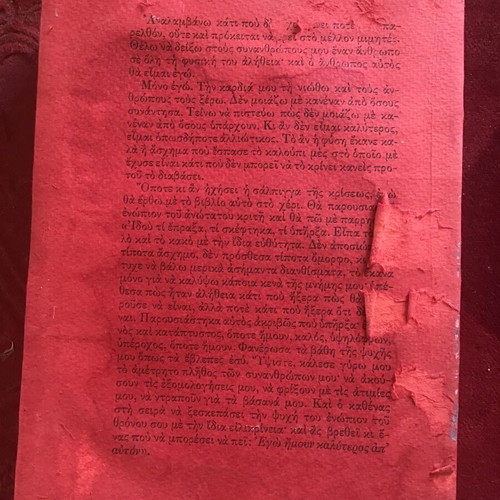 Ἀναλαμβάνω κάτι ποὺ δ' ποτὲ
ρελθόν, οὔτε καὶ πρόκειται νὰ ρεῖ στὸ μέλλον μιμητές.
Θέλω νὰ δείξω στοὺς συνανθρώπους μου ἕναν ἄνθρωπο
σὲ ὅλη τὴ φυσική του ἀλήθεια· καὶ ὁ ἄνθρωπος αὐτὸς
θὰ εἶμαι ἐγώ.
Μόνο ἐγώ. Τὴν καρδιά μου τὴ νιώθω καὶ τοὺς ἀν-
θρώπους τοὺς ξέρω. Δὲν μοιάζω μὲ κανέναν ἀπὸ ὅσους
συνάντησα. Τείνω νὰ πιστεύω πὼς δὲν μοιάζω μὲ κα-
νέναν ἀπὸ ὅσους ὑπάρχουν. Κι ἂν δὲν εἶμαι καλύτερος,
εἶμαι ὁπωσδήποτε ἀλλιώτικος. Τὸ ἂν ἡ φύση ἔκανε κα-
λὰ ἢ ἄσχημα ποὺ ἔσπασε τὸ καλούπι μὲς στὸ ὁποῖο μὲ
ἔχυσε εἶναι κάτι ποὺ δὲν μπορεῖ νὰ τὸ κρίνει κανεὶς προ-
τοῦ τὸ διαβάσει.
Ὅποτε κι ἂν ἠχήσει ἡ σάλπιγγα τῆς κρίσεως,
θὰ ἔρθω μὲ τὸ βιβλίο αὐτὸ στὸ χέρι. Θὰ παρουσια
ἐνώπιον τοῦ ἀνώτατου κριτῆ καὶ θὰ πῶ μὲ παρρη
«Ἰδοὺ τί ἔπραξα, τί σκέφτηκα, τί ὑπῆρξα. Εἶπα τ
λὸ καὶ τὸ κακὸ μὲ τὴν ἴδια εὐθύτητα. Δὲν ἀποσιώ
τίποτα ἄσχημο, δὲν πρόσθεσα τίποτα ὄμορφο, κ
τυχε νὰ βάλω μερικὰ ἀσήμαντα διανθίσματα, τὸ ἔκανα
μόνο γιὰ νὰ καλύψω κάποια κενὰ τῆς μνήμης μου· ὑπέ-
θεσα πὼς ἦταν ἀλήθεια κάτι ποὺ ἤξερα πὼς θὰ
ροῦσε νὰ εἶναι, ἀλλὰ ποτὲ κάτι ποὺ ἤξερα ὅτι δὲ
ναι. Παρουσιάστηκα αὐτὸς ἀκριβῶς ποὺ ὑπῆρξα·
νὸς καὶ κατάπτυστος, ὁπότε ἤμουν, καλός, ὑψηλόφρων,
ὑπέροχος, ὁπότε ἤμουν. Φανέρωσα τὰ βάθη τῆς ψυχῆς
μου ὅπως τὰ ἔβλεπες ἐσύ. Ὕψιστε, κάλεσε γύρω μου
τὸ ἀμέτρητο πλῆθος τῶν συνανθρώπων μου· νὰ ἀκού-
σουν τὶς ἐξομολογήσεις μου, νὰ φρίξουν μὲ τὶς ἀτιμίες
μου, νὰ ντραποῦν γιὰ τὰ βάσανά μου. Καὶ ὁ καθένας
στὴ σειρὰ νὰ ξεσκεπάσει τὴν ψυχή του ἐνώπιον τοῦ
θρόνου σου μὲ τὴν ἴδια εἰλικρίνεια· καὶ ἂς βρεθεῖ κι ἕ-
νας ποὺ νὰ μπορέσει νὰ πεῖ: Ἐγὼ ἤμουν καλύτερος ἀπ'
αὐτόν».